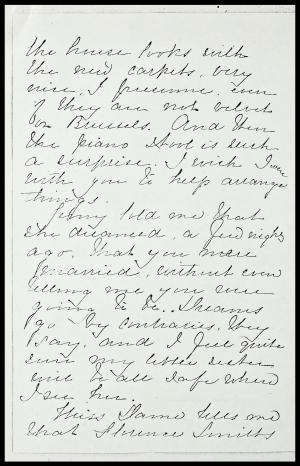 the house looks with
the new carpets, very
nice, I presume, even
if they are not velvet
or Brussels. And then
the piano stool is such
a surprise. I wish I were
with you to help arrange
things.
Jenny told me that
she dreamed, a few nights
ago, that you were
married, without even
telling me you were
going to be. Dreams
go by contraries, they
say, and I feel quite
sure my little sister
will be all safe when
I see her.
Miss Dame tells me
that Florence Smith's